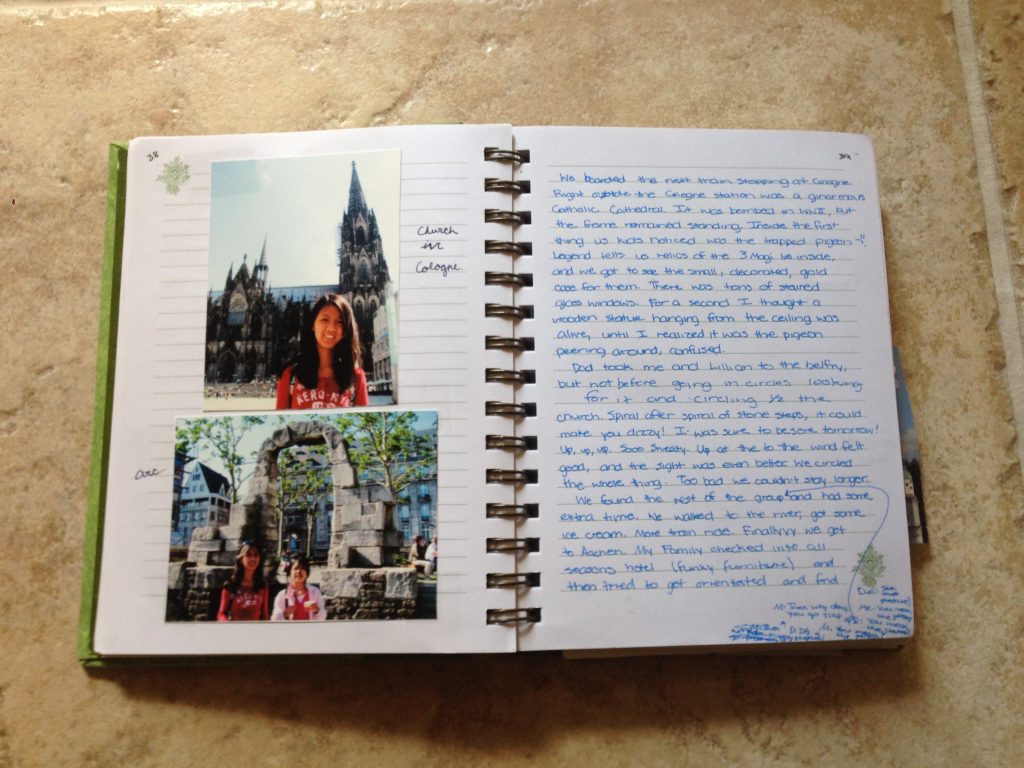 38
Church
in
Cologne.
AERO-NYC
arc
39
We boarded the next train stopping at Cologne.
Right outside the Cologne station was a ginormous
Catholic Cathedral. It was bombed in WWII, but
the frame remained standing. Inside the first
thing us kids noticed was the trapped pigeon
Legend tells us relics of the 3 Magi lie inside,
and we got to see the small, decorated, gold
case for them. There was tons of stained
glass windows. For a second I thought a
wooden statue hanging from the ceiling was
alive, until I realized it was the pigeon
peering around, confused.
Dad took me and Lillian to the belfry,
but not before going in circles looking
for it and circling 1/2 the
church. Spiral after spiral of stone steps, it could
make you dizzy! I was sure to be sore tomorrow!
Up, up, up. Sooo sweaty. Up at the to the wind felt
good, and the sight was even better. We circled
the whole thing. Too bad we couldn't stay longer.
We found the rest of the group and had some
extra time. We walked to the river, got some
ice cream. More train ride. Finallyyy we get
to Aachen. My Family checked into all
seasons hotel (funky furniture) and
then tried to get orientated and find